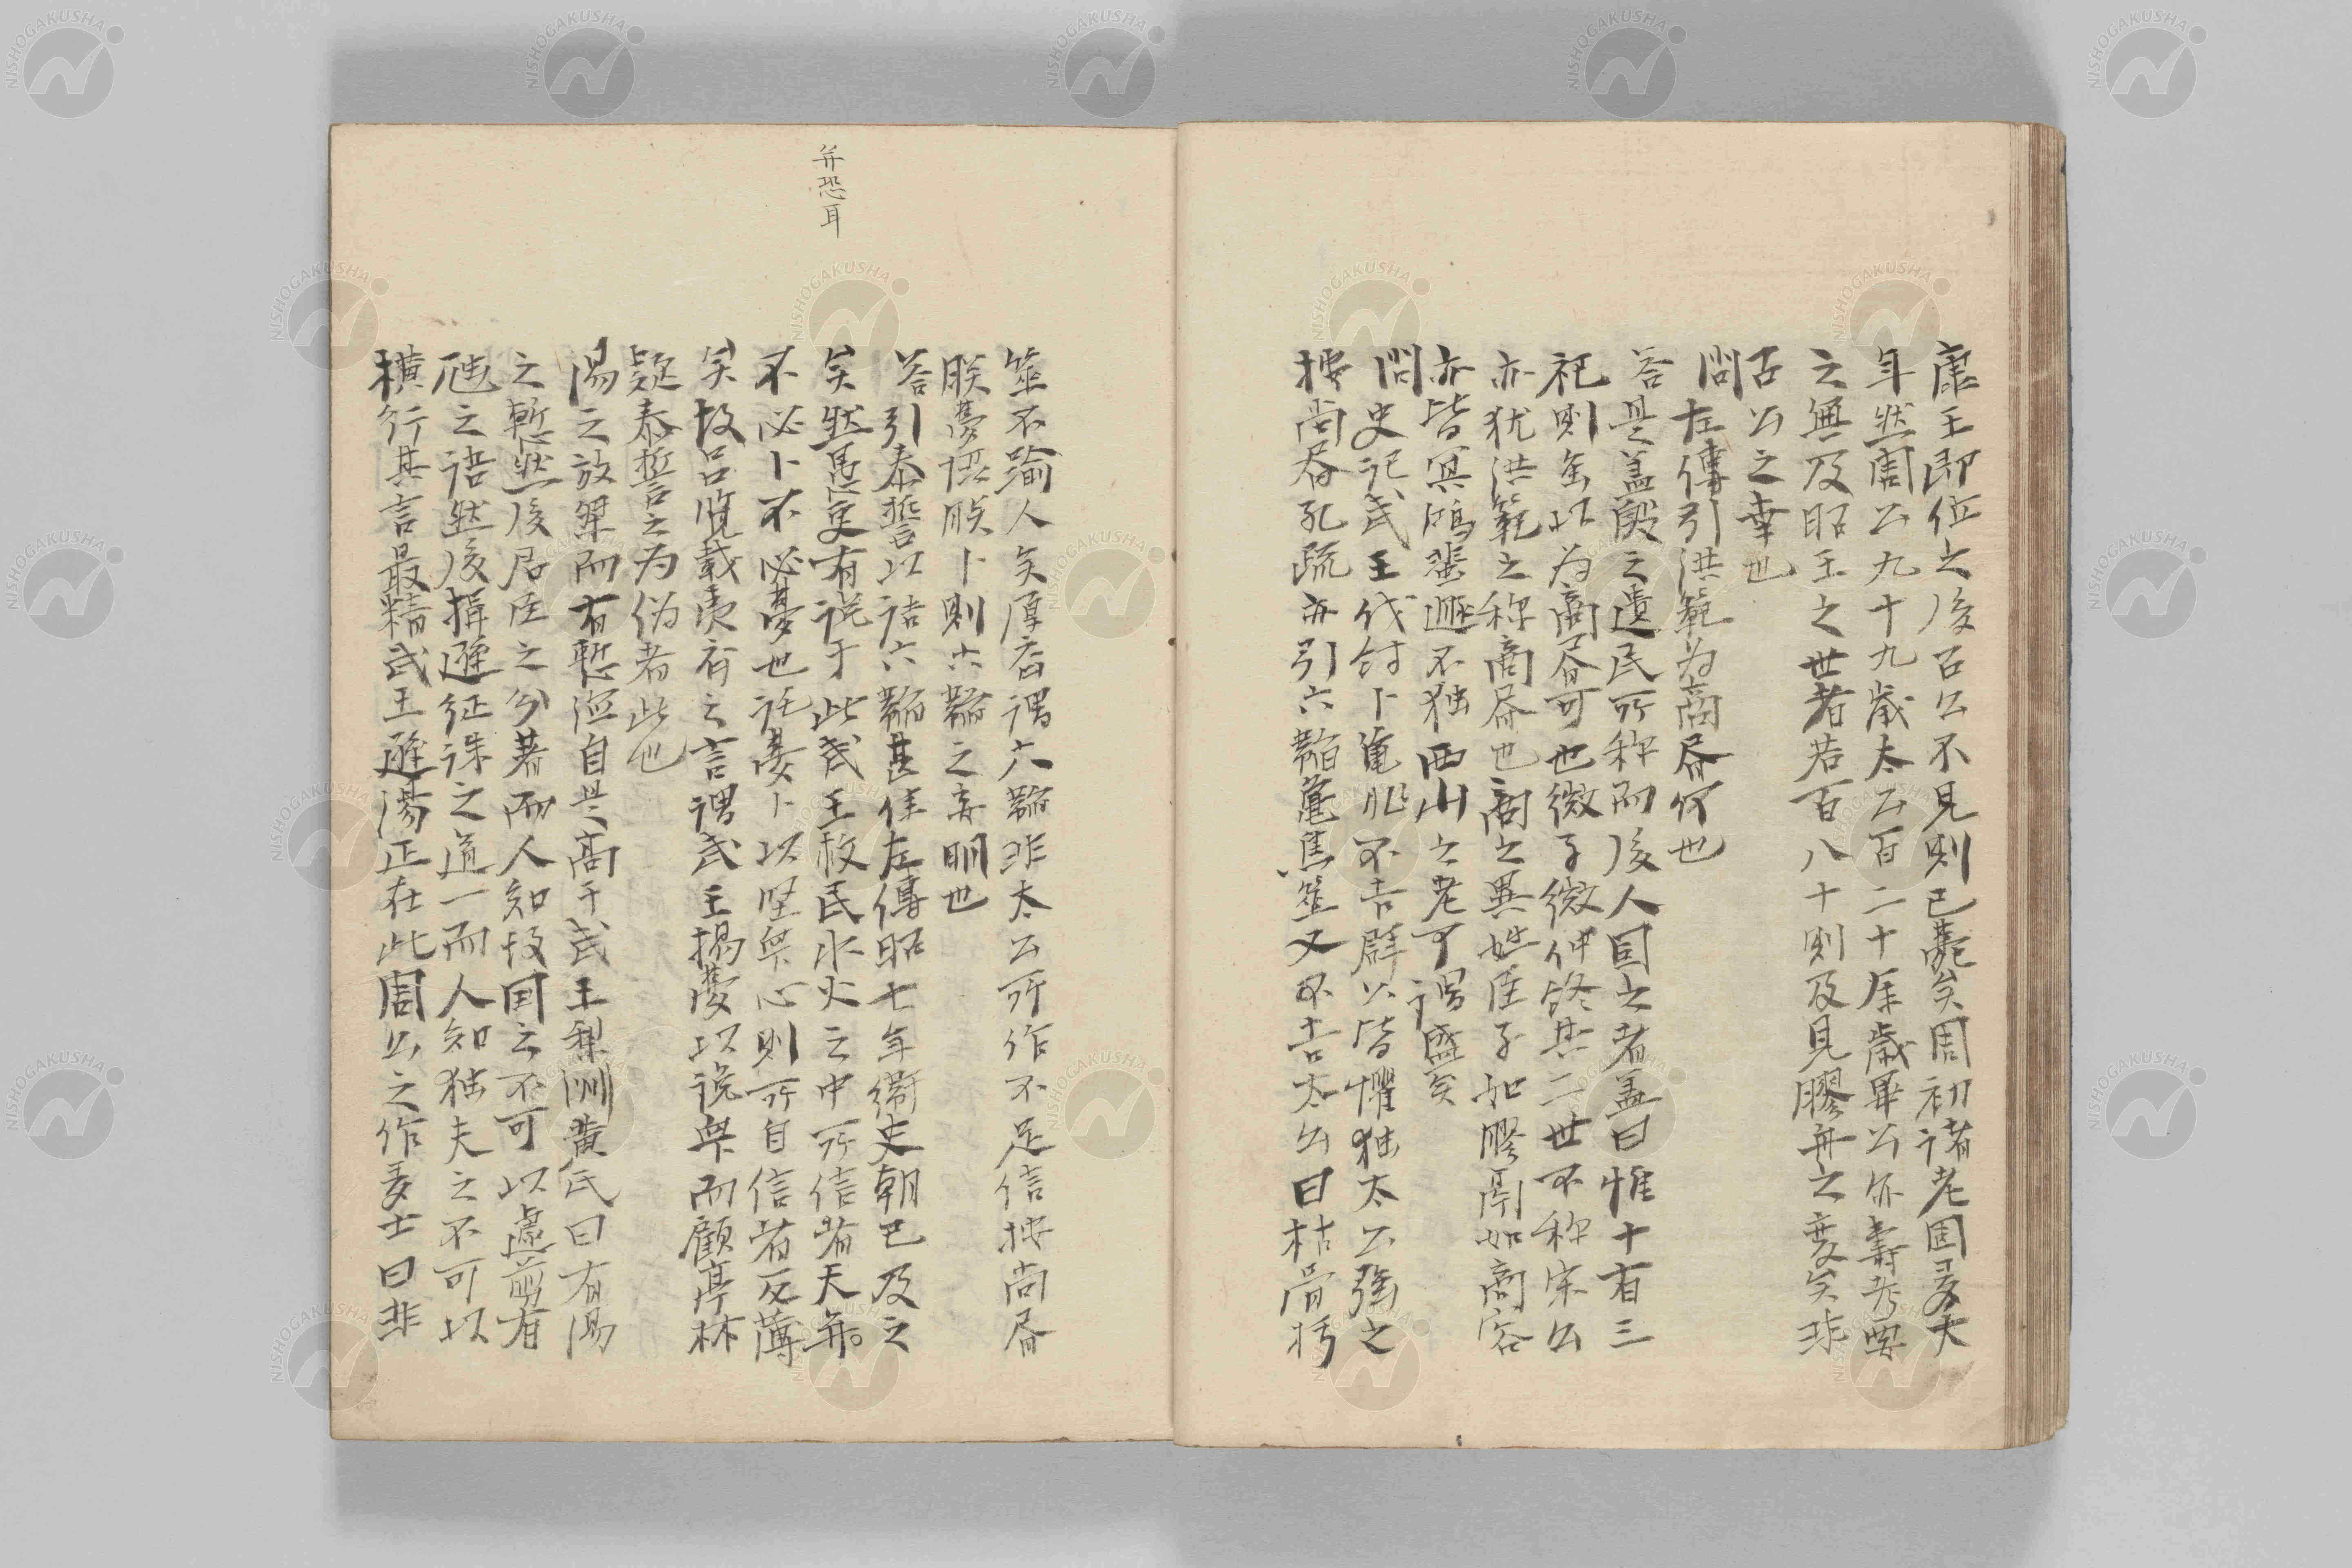 康王即位之後召公不見則已薨矣周初諸老固多大
年然周公九十九歲太公百二十馀歲畢公亦壽考要
之無及昭王之世者若百八十則及見膠舟之變矣非
召公之幸也
問左傳引洪範为商昬何也
荅是盖殷之遺民所称而後人因之者盖曰惟十有三
祀則玺以为商昬可也微子微仲終其二世不称宋公
亦犹洪範之称商昬也商之異姓臣子如膠鬲如商容
亦皆冥鴻蜚遯不独西山之老可謂盛矣
問史記武王伐紂卜亀兆不吉群公皆懼独太公强之
按尚昬孔疏亦引六韜龜焦筮又不吉太公曰枯骨朽
筮不踰人矣厚斎謂六韜非太公所作不足信按尚昬
朕夢恊朕卜則六韜之妄明也
荅引泰誓以诘六韜甚佳左傳昭七年衛史朝已及之
矣然愚更有说于此武王救民水火之中所信者天耳
不必卜不必夢也託夢卜以坚眾心則所自信者反薄
矣故吕覧載夷齐之言謂武王揚夢以说眾而顧亭林
疑泰誓之为伪者此也
湯之放桀而有慙德自是高于武王梨洲黄氏曰有湯
之慙然後君臣之分著而人知故国之不可以遽剪有
虺之诰然後揖遜征诛之道一而人知独夫之不可以
横行其言最精武王遜湯正在此周公之作多士曰非
并恐耳